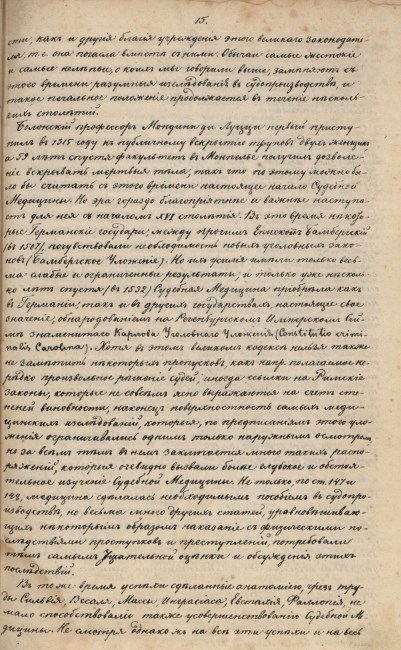 15.
сти, какъ и другія благія учрежденія этого великаго законодате-
ля, т. е. она погасла вмѣстѣ съ ними. Обычаи самые жестокіе
и самые нелѣпые, о коихъ мы говорили выше, замѣняютъ съ
этого времени разумныя изслѣдованія въ судопроизводствѣ, и
такое печальное положеніе продолжается въ теченіе нѣсколь-
кихъ столѣтій.
Болонскій профессоръ Мондини ди Луцци первый присту-
пилъ въ 1315 году къ публичному вскрытію труповъ двухъ женщинъ
а 59 лѣтъ спустя факультетъ въ Монпелье получилъ дозволе-
ніе вскрывать мертвыя тѣла, такъ что поэтому можно бы-
ло бы считать съ этого времени настоящее начало Судебной
Медицины. Но эра гораздо благопріятнѣе и важнѣе наступа-
етъ для нея съ началомъ XVI столѣтія. Въ это время нѣкото-
рые Германскіе государи, между прочимъ Епископъ Бамбергскій
(въ 1507), почувствовали необходимость новыхъ уголовныхъ зако-
новъ (Бамбергское Уложеніе). Но ихъ усилія имѣли только весь-
ма слабые и ограниченные результаты, и только уже нѣсколь-
ко лѣтъ спустя (въ 1532) Судебная Медицина пріобрѣла какъ
въ Германіи, такъ и въ другихъ государствахъ, настоящее свое
значеніе, обнародованіемъ на Регенсбургскомъ Имперскомъ сей-
мѣ знаменитаго Карлова Уголовнаго Уложенія (Constitutio crimi-
nalis Carolina). Хотя въ этомъ великомъ кодексѣ нельзя также
не замѣтить нѣкоторыхъ пропусковъ, какъ напр. полагаемое не-
рѣдко произвольное рѣшеніе судей, иногда ссылки на Римскіе
законы, которые не совсѣмъ ясно выражаются на счетъ сте-
пеней виновности, наконецъ поверхностность самыхъ меди-
цинскихъ изслѣдованій, которыя, по предписаніямъ этого уло-
женія ограничивались однимъ только наружнымъ осмотромъ,
но за всѣмъ тѣмъ въ немъ заключается много такихъ распо-
ряженій, которыя очевидно вызвали болѣе глубокое и обстоя-
тельное изученіе Судебной Медицины. Не только, по ст. 147 и
148, медицина сдѣлалась необходимымъ пособіемъ въ судопро-
изводствѣ, но весьма много другихъ статей, уравновѣшиваю-
щихъ нѣкоторымъ образомъ наказаніе съ физическими по-
слѣдствіями проступковъ и преступленій, потребовали
тѣмъ самымъ тщательной оцѣнки и обсужденія этихъ
послѣдствій.
Въ тоже время успѣхи сдѣланные анатоміею, чрезъ тру-
ды Сильвія, Везаля, Массы, Евстахія, Фаллопія, не
мало способствовали также усовершенствованію Судебной Ме-
дицины. Не смотря однако жъ на всѣ эти успѣхи и на всѣ